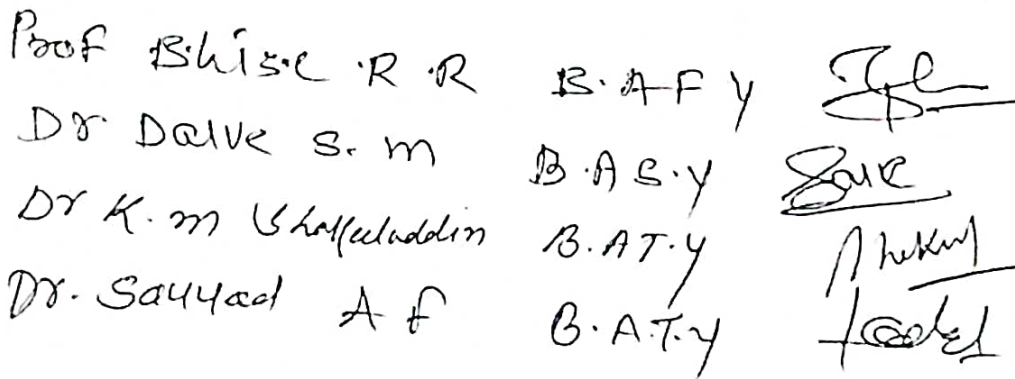 Prof Bhise R.R B.A F Y
Dr. Dalve S.m B.A S.y
Dr K.m B.A T.y
Dr. Sayyad A f B.A.T.y